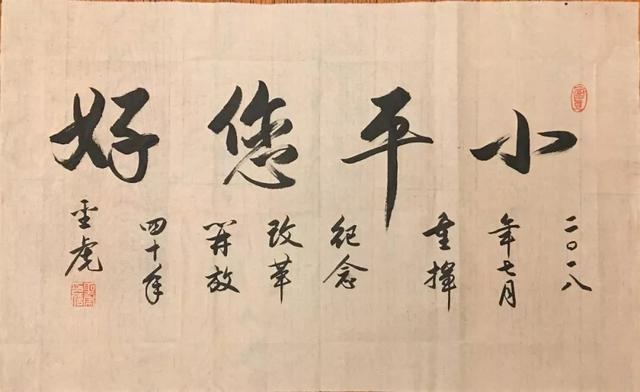 小平您好
二〇一八
年七月
重挥
纪念
改革
开放
四十年
圣虎